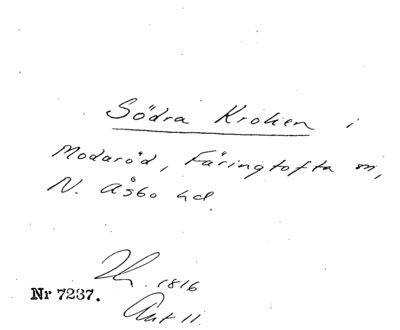 Södra Kroken i
Modaröd, Färingtofta sn,
N. Åsbo hd.
1816
Nr 7237.
Ant 11.